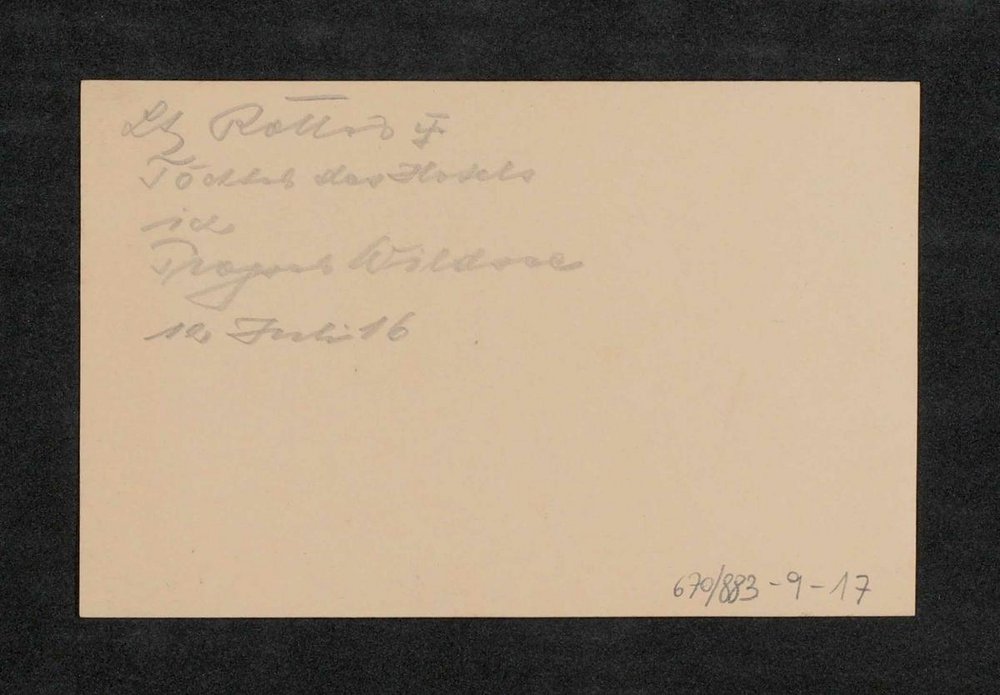 Ltz Rotter
Töchter des Hotels
ich
Prags Wildsee
12 Juli 16
670/883-9-17